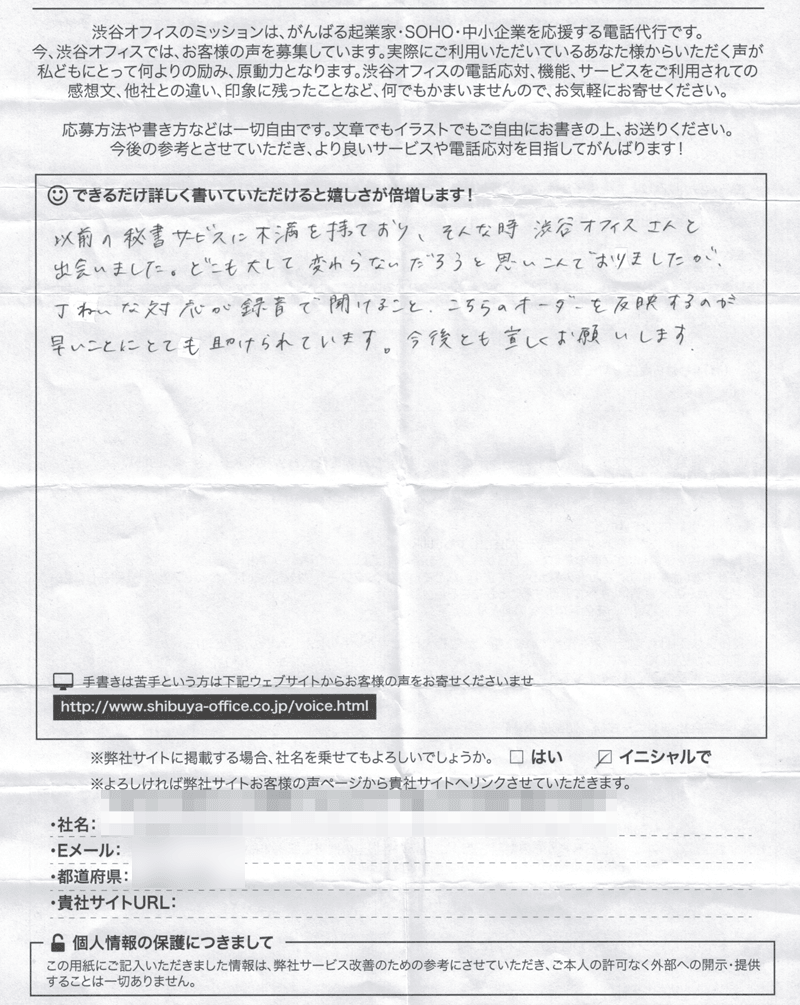 渋谷オフィスのミッションは、がんばる起業家・SOHO・中小企業を応援する電話代行です。
今、渋谷オフィスでは、お客様の声を募集しています。実際にご利用いただいているあなた様からいただく声が
私どもにとって何よりの励み、原動力となります。渋谷オフィスの電話応対、機能、サービスをご利用されての
感想文、他社との違い、印象に残ったことなど、何でもかまいませんので、お気軽にお寄せください。
応募方法や書き方などは一切自由です。文章でもイラストでもご自由にお書きの上、お送りください。
今後の参考とさせていただき、より良いサービスや電話応対を目指してがんばります！
できるだけ詳しく書いていただけると嬉しさが倍増します！
以前の秘書サービスに不満を持っており、そんな時 渋谷オフィスさんと
出会いました。どこも大して変わらないだろうと思いこんでおりましたが、
丁ねいな対応が録音で聞けること、こちらのオーダーを反映するのが
早いことにとても助けられています。今後とも宜しくお願いします。
手書きは苦手という方は下記ウェブサイトからお客様の声をお寄せくださいませ
http://www.shibuya-office.co.jp/voice.html
※弊社サイトに掲載する場合、社名を乗せてもよろしいでしょうか。 □ はい ☑ イニシャルで
※よろしければ弊社サイトお客様の声ページから貴社サイトへリンクさせていただきます。
・社名：
・Eメール：
・都道府県：
・貴社サイトURL：
個人情報の保護につきまして
この用紙にご記入いただきました情報は、弊社サービス改善のための参考にさせていただき、ご本人の許可なく外部への開示・提供
することは一切ありません。